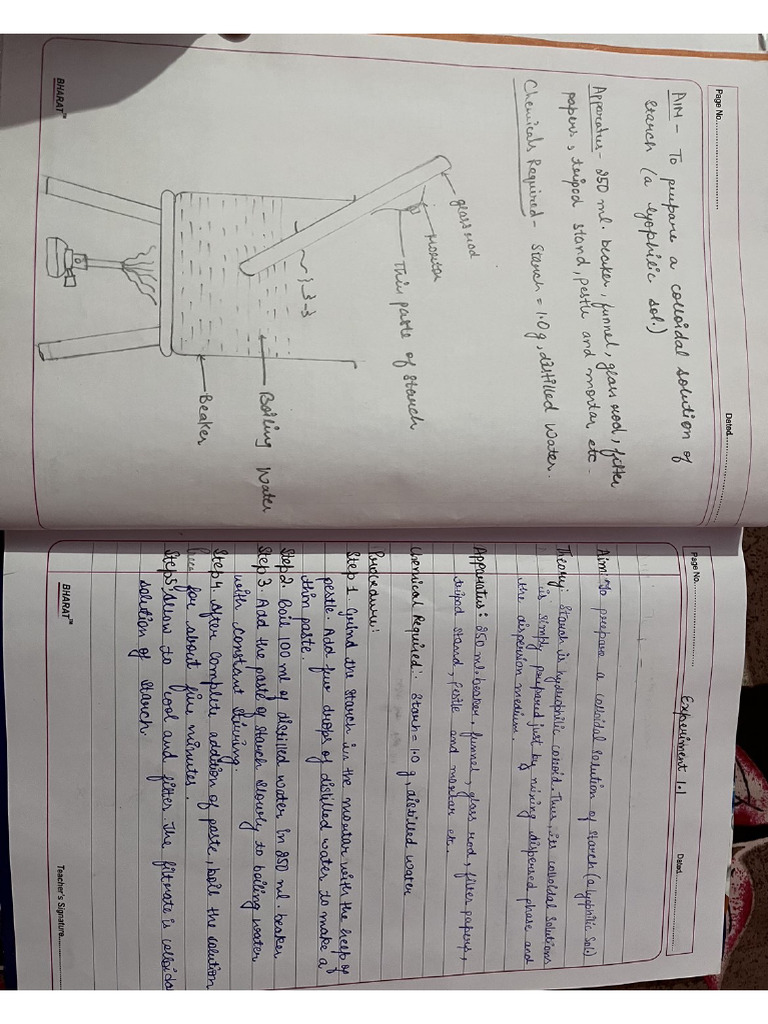 Page No.
Dated
AIM - To prepare a colloidal solution of
starch (a lyophilic sol.)
Apparatus - 250 ml. beaker, funnel, glass rod, filter
papers, tripod stand, pestle and mortar etc.
Chemicals Required - Starch = 1.0 g, distilled water.
glass rod
Mortar
Thin paste of starch
Boiling Water
Beaker
BHARAT™
Page No.
Dated
Experiment 1.1
Aim: To prepare a colloidal solution of starch (a lyophilic sol)
Theory: Starch is hydrophilic colloid. Thus, its colloidal solutions
is simply prepared just by mixing dispersed phase and
the dispersion medium.
Apparatus: 250 ml. beaker, funnel, glass rod, filter papers,
tripod stand, Pestle and mortar etc.
Chemical Required: Starch = 1.0 g, distilled water
Procedure:
Step 1 Grind the starch in the mortar with the help of
pestle. Add few drops of distilled water to make a
thin paste.
Step 2. Boil 100 ml of distilled water in 250 ml. beaker
Step 3. Add the paste of starch slowly to boiling water
with constant stirring.
Step 4. After complete addition of paste, boil the solution
for about five minutes.
Step 5. Allow to cool and filter. The filtrate is colloidal
solution of starch.
BHARAT™
Teacher's Signature